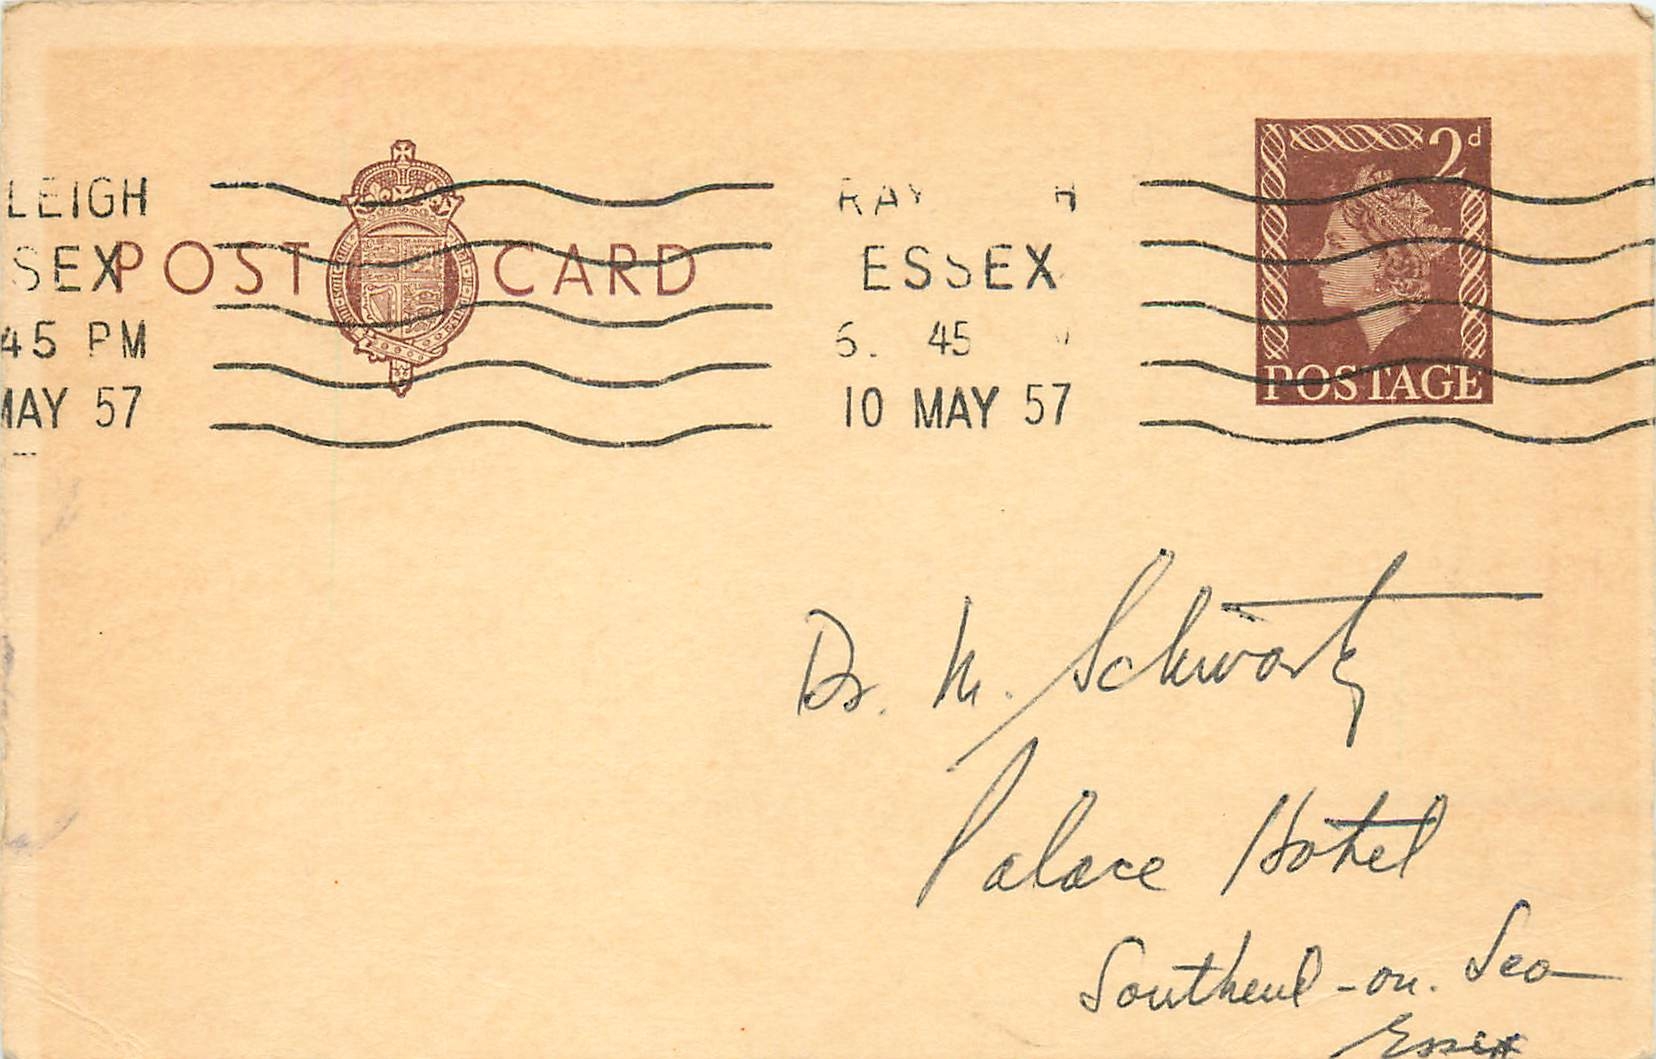 2d
LEIGH
RAY H
SEX
POST CARD
ESSEX
45 PM
6. 45
MAY 57
10 MAY 57
POSTAGE
Dr. M. Schwartz
Palace Hotel
Southend-on-Sea
Essex